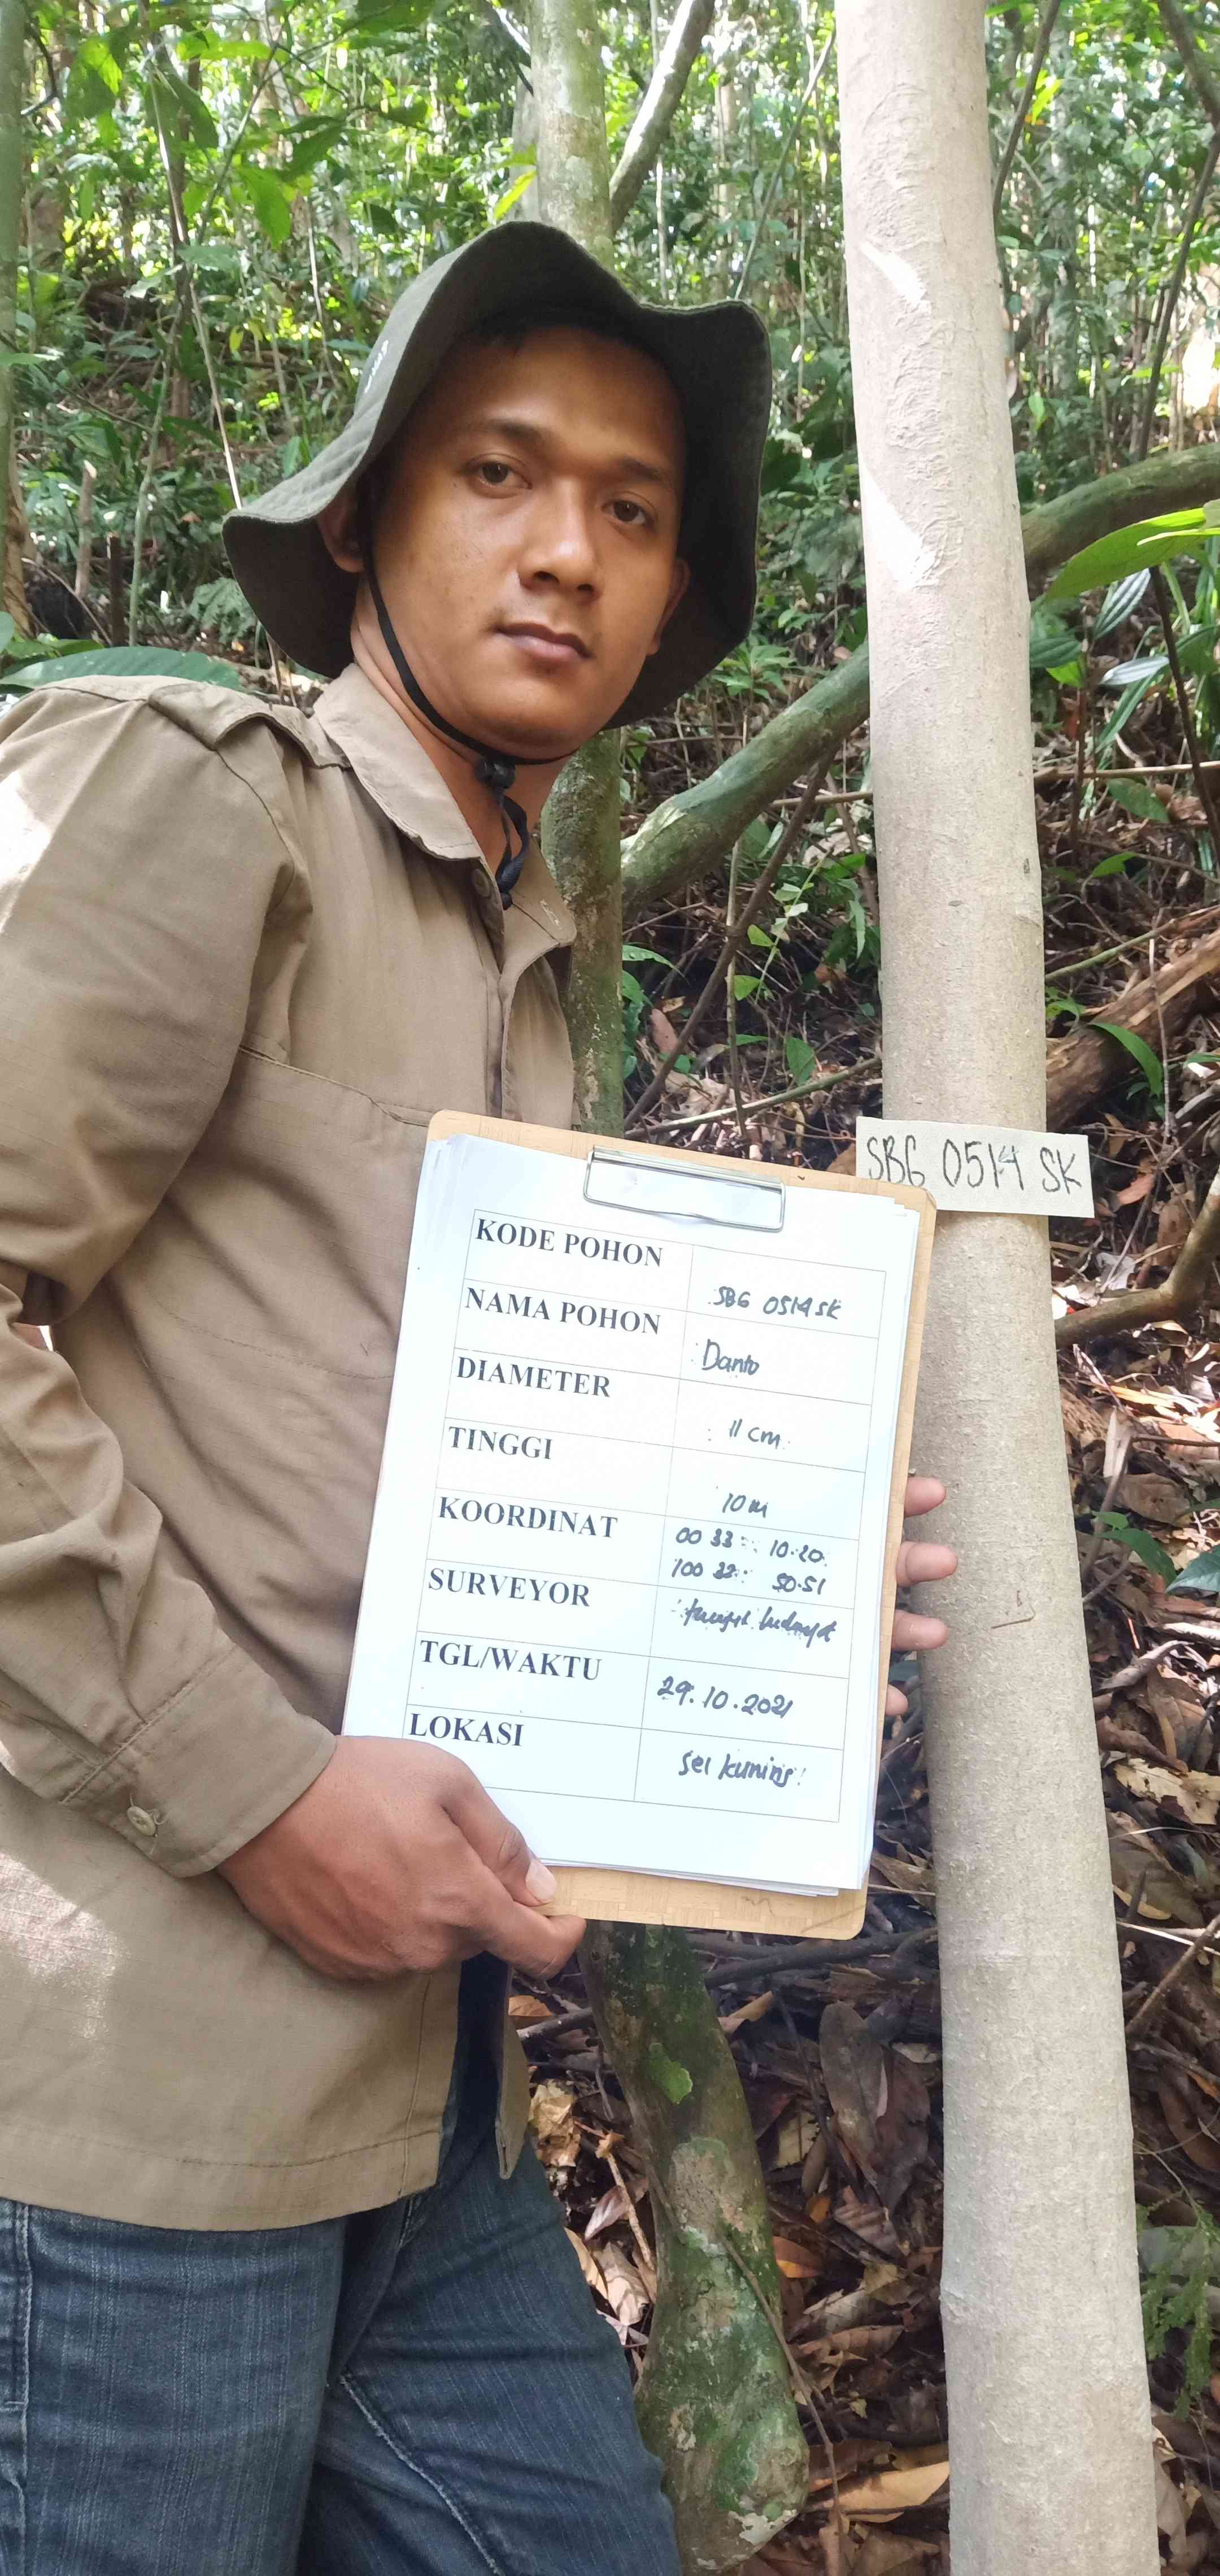 SBG 0514 SK
KODE POHON
SBG 0514 SK
NAMA POHON
: Danto
DIAMETER
: 11 cm
TINGGI
10 m
KOORDINAT
00 33 : 10.20
100 32 : 50.51
SURVEYOR
TGL/WAKTU
29.10.2021
LOKASI
Sei kuning